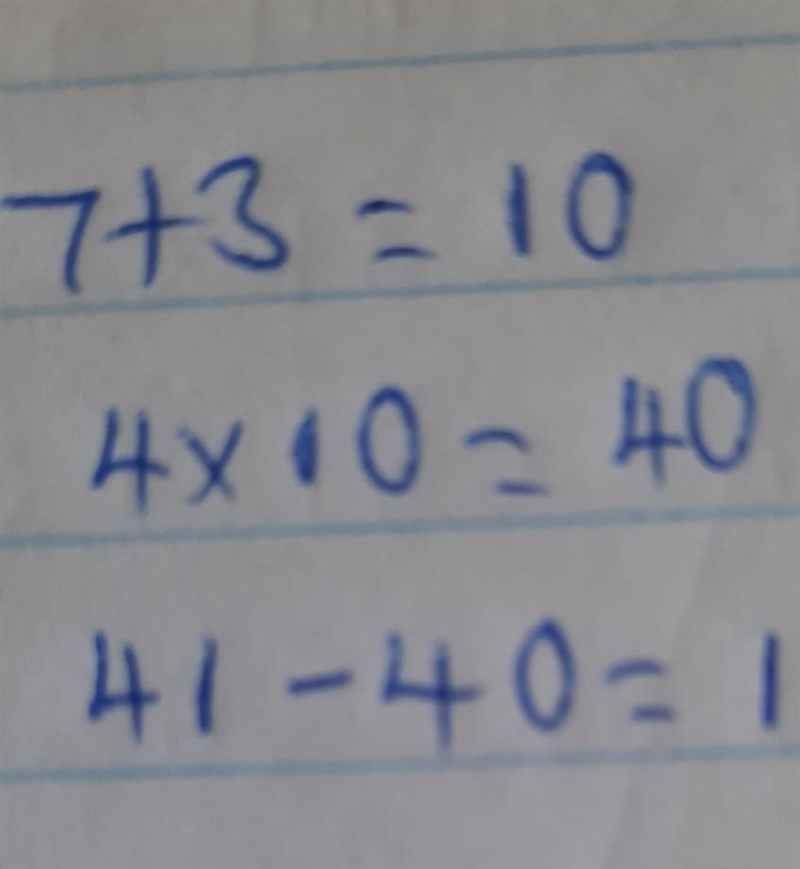 7+3 = 10
4x10 = 40
41-40=1